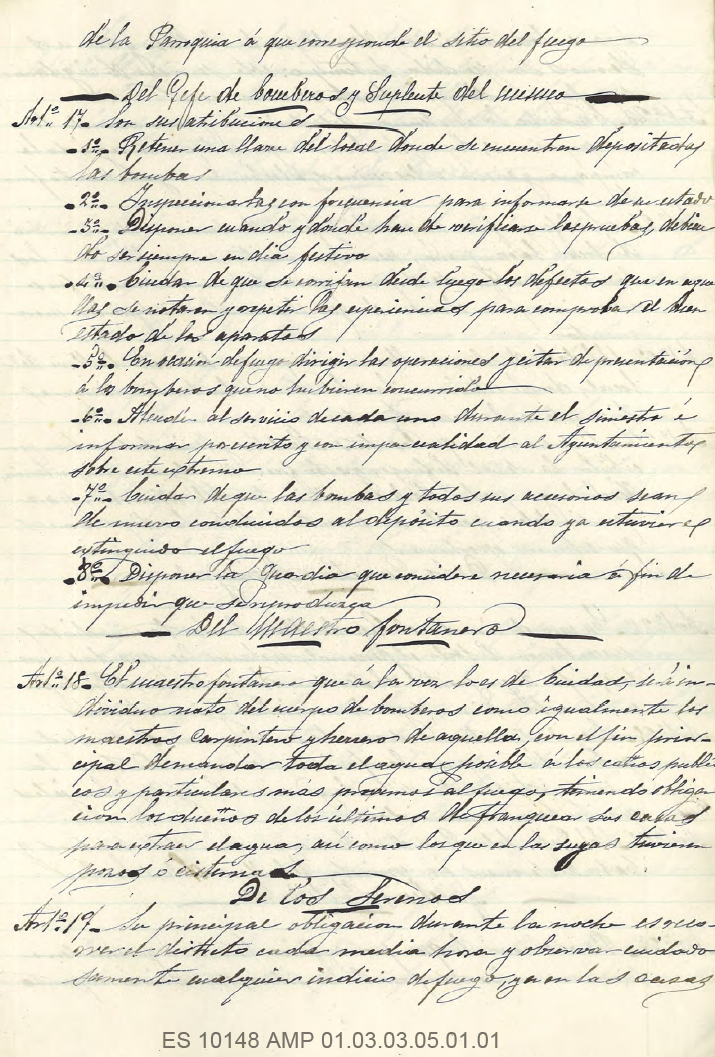 de la Parroquia á que corresponde el sitio del fuego
Del Gefe de bomberos y Suplente del mismo
Artº 17. Son sus atribuciones
1ª Retener una llave del local donde se encuentren depositadas
las bombas
2ª Inspeccionarlas con frecuencia para informarse de su estado
3ª Disponer cuando y donde han de verificarse las pruebas, debien
do ser siempre en dia festivo
4ª Cuidar de que se corrijan desde luego los defectos que en aque
llas se notaren y repetir las esperiencias para comprobar el buen
estado de los aparatos
5ª En ocasión de fuego dirigir las operaciones y citar de presentación
á los bomberos que no hubieren concurrido
6ª Atender al servicio de cada uno durante el siniestro é
informar por escrito y con imparcialidad al Ayuntamiento
sobre este estremo
7ª Cuidar de que las bombas y todos sus accesorios sean
de nuevo conducidos al depósito cuando ya estuviere
estinguido el fuego
8ª Disponer la Guardia que considere necesaria á fin de
impedir que se reproduzca
Del Maestro fontanero
Artº 18. El maestro fontanero que á la vez lo es de Ciudad, será in-
dividuo nato del cuerpo de bomberos como igualmente los
maestros Carpintero y herrero de aquella, con el fin prin-
cipal de mandar toda el agua posible á los caños públi
cos y particulares mas procsimos al fuego, teniendo obliga
cion los dueños de los últimos de franquear sus casas
para extraer el agua, así como los que en las suyas tuvieren
pozos ó cisternas.
De los Serenos
Artº 19. Su principal obligacion durante la noche es reco-
rrer el distrito cada media hora y observar cuidado
samente cualquier indicio de fuego, ya en las casas
ES 10148 AMP 01.03.03.05.01.01